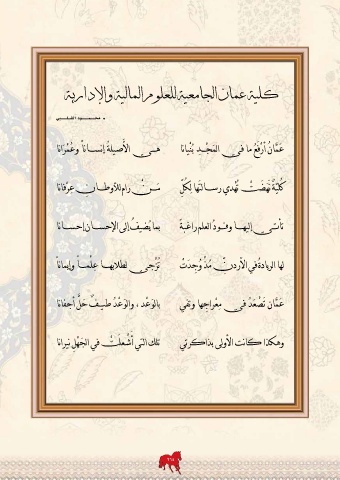 كلية عمان الجامعية للعلوم المالية والإدارية
عَمَّانُ أَرْفَعُ ما في المَجْدِ بُنْيانا هي الأَصيلَةُ إنساناً وعُمْرانا
كُلِّيَّةٌ نَهَضَتْ تُهدي رسالتَها لِكُلِّ مَنْ رامَ للأوطانِ عِرْفانا
تأتي إليها وفودُ العلمِ راغبةً بما يُضيفُ إلى الإحسانِ إحسانا
لها الريادةُ في الأردنِّ مُذْ وُجِدَتْ تُزْجي لطلابها علْماً وإيمانا
عَمّان تَصْعَدُ في مِعْراجِها وتفي بالوَعْدِ، والوَعْدُ طيفٌ حَلَّ أجفانا
وهكذا كانت الأولى بذاكرتي تلك التي أَشْعَلَتْ في الجَهْلِ نيرانا